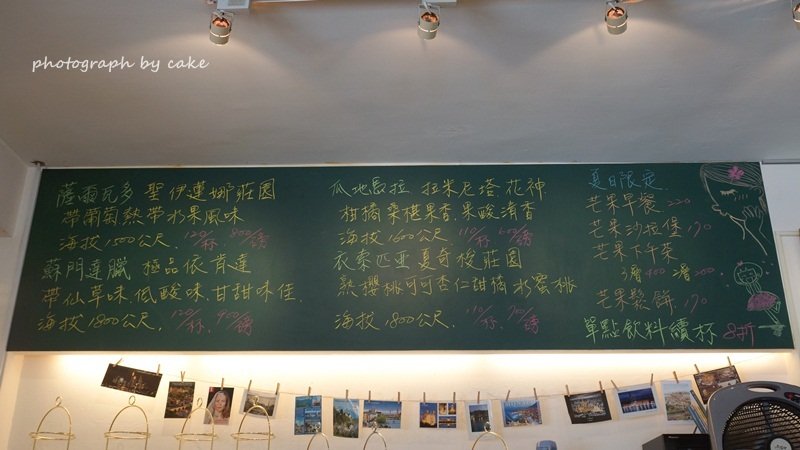 photograph by cake
薩爾瓦多 聖伊蓮娜莊園
帶葡萄熱帶水果風味
海拔1500公尺. 120/杯. 800/磅
蘇門達臘 極品依肯達
帶仙草味.低酸味.甘甜味佳.
海拔1800公尺. 120/杯. 900/磅
瓜地馬拉 拉米尼塔花神
柑橘桑椹果香.果酸清香
海拔1600公尺. 110/杯 600/磅
衣索匹亞 夏奇梭莊園
熟櫻桃可可杏仁甜橘水蜜桃
海拔1800公尺. 110/杯. /磅
夏日限定.
芒果早餐 220
芒果沙拉堡 170
芒果下午茶
3層400 2層200.
芒果鬆餅. 170
單點飲料續杯 8折